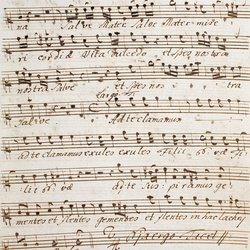 na Salve Mater Salve Mater mise
ri cordiæ Vita dulcedo et spes nostra
nostra Salve et spes nos tra
Salve. Ad te clamamus
ad te clamamus exules exules Filii
ad te Sus: piramus ge
mentes et flentes gementes et flentes in hac lachry